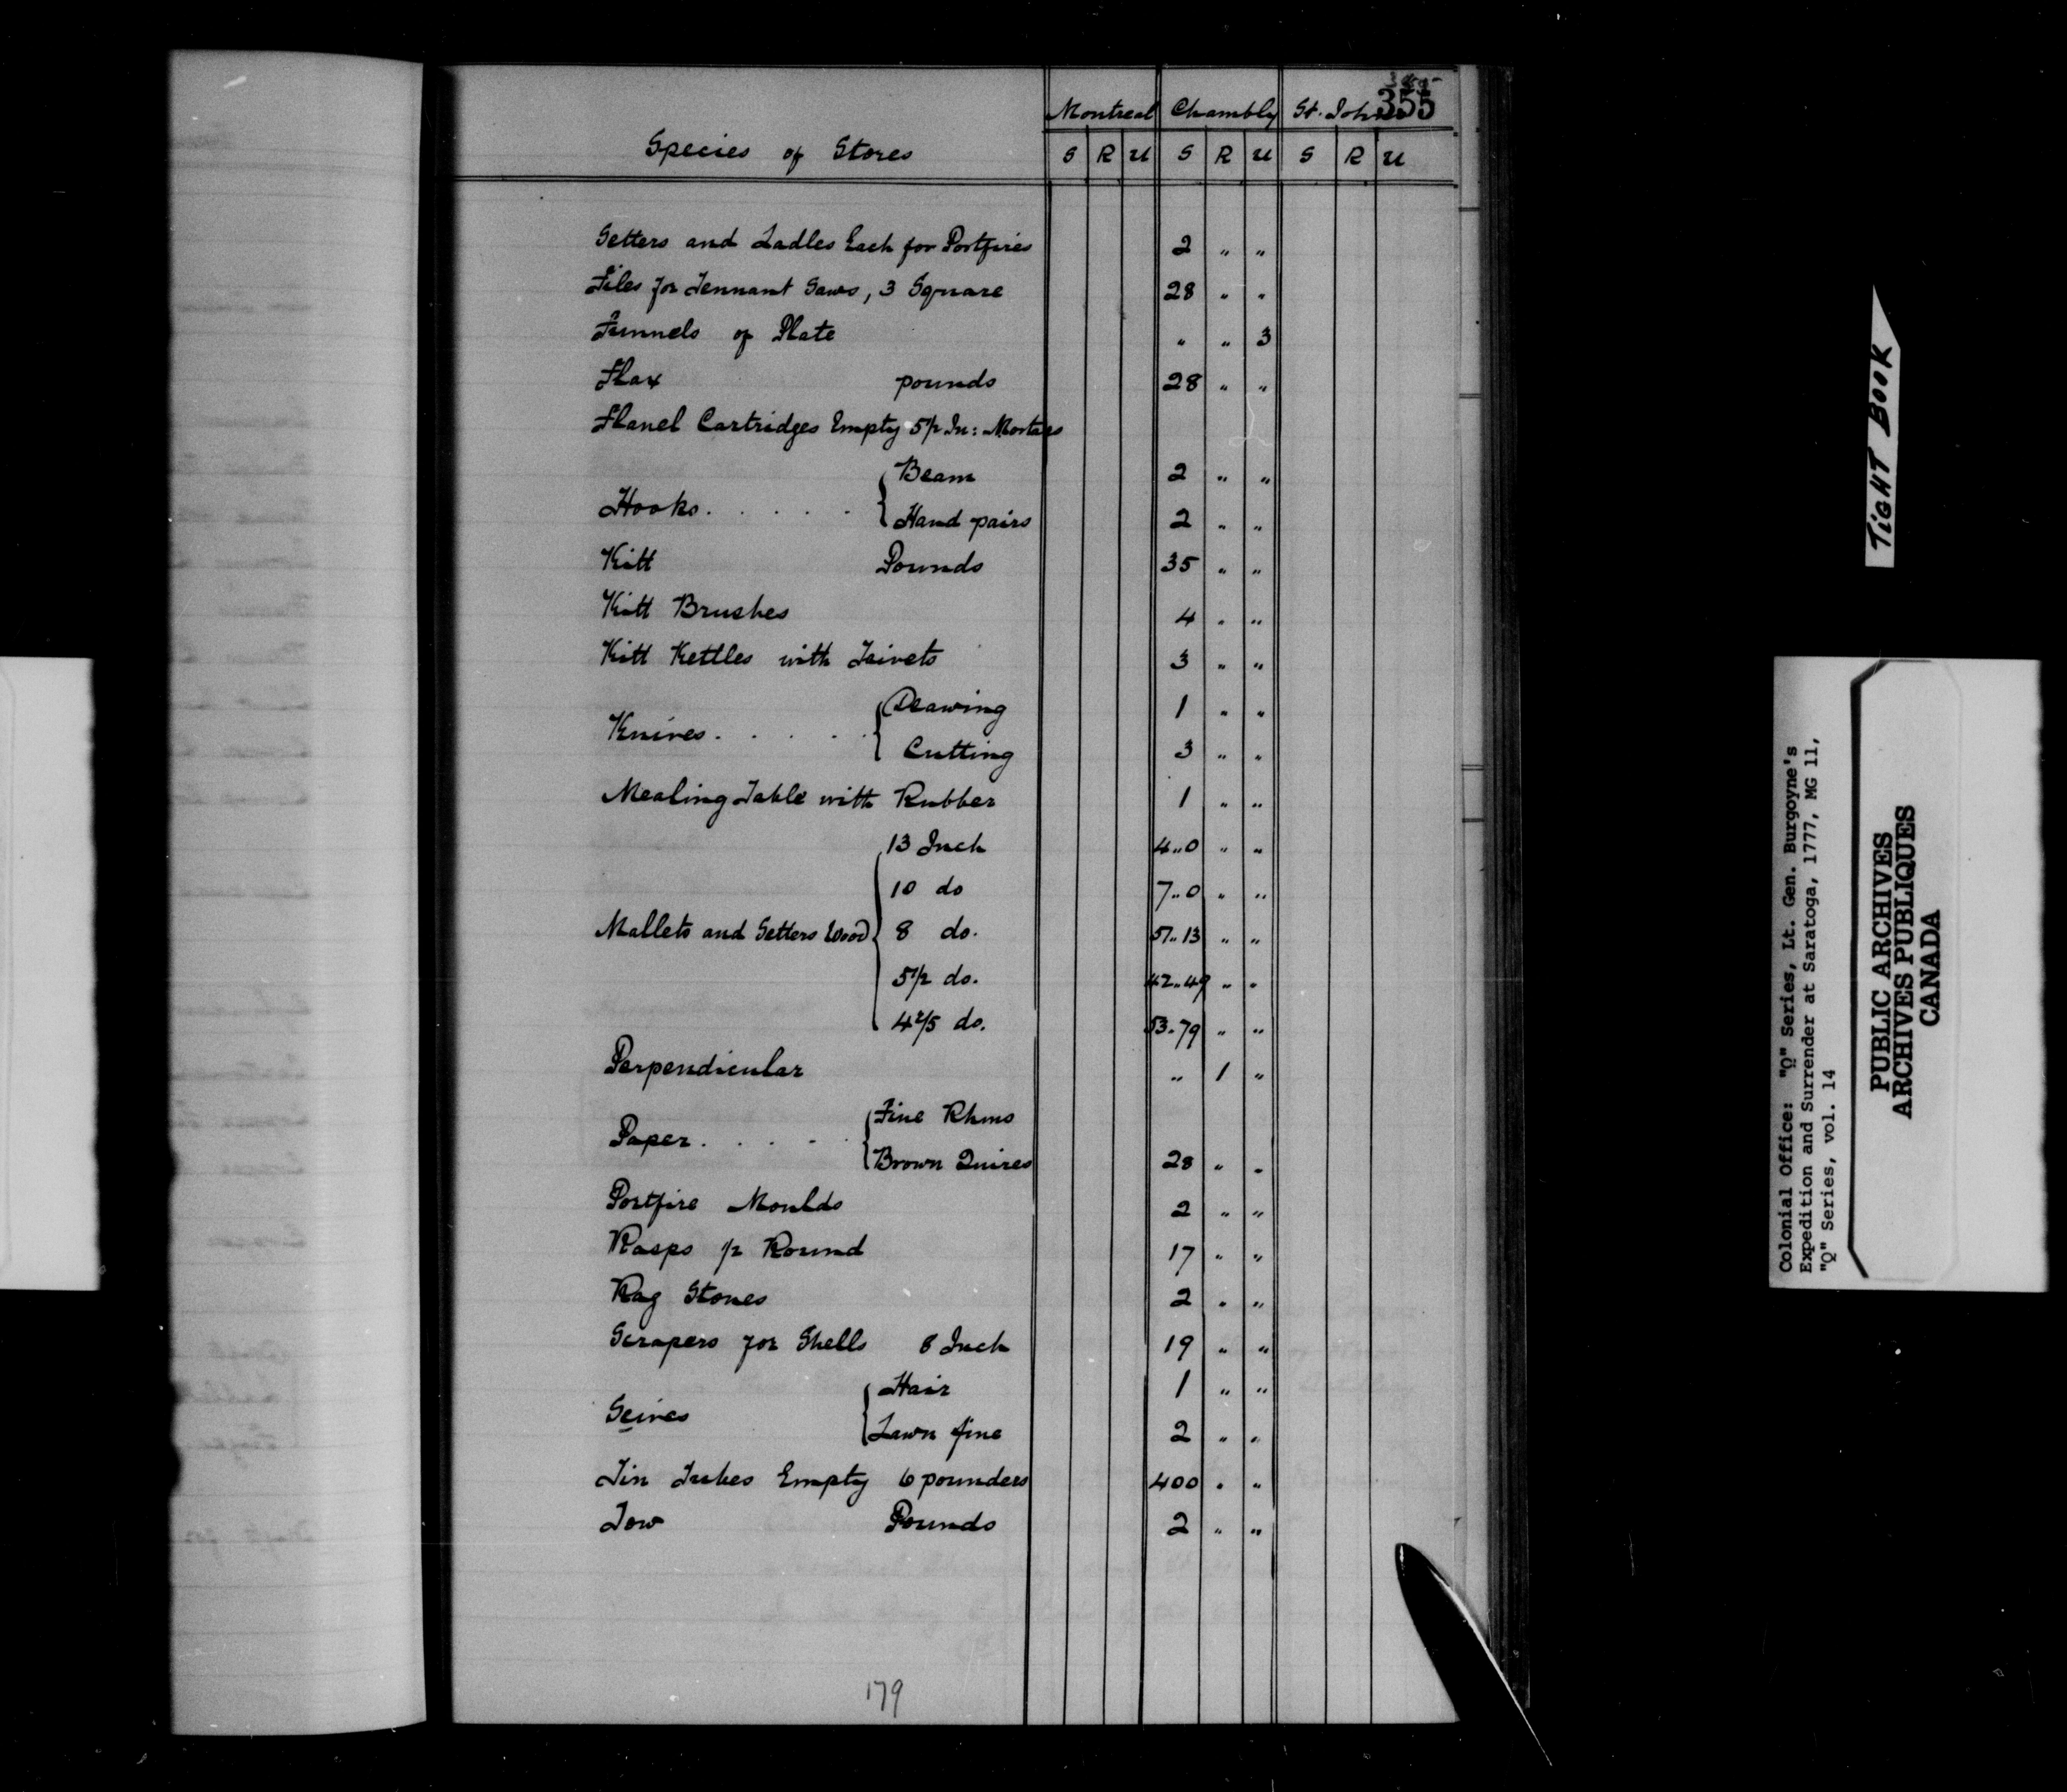 355
Montreal Chambly St. Johns
Species of Stores S R U S R U S R U
Setters and Ladles Each for Portfires 2 " "
Files for Tennant Saws, 3 Square 28 " "
Funnels of Plate " " 3
Flax pounds 28 " "
Flanel Cartridges Empty 5½ In: Mortars
Hooks. . . . . { Beam 2 " "
Hand pairs 2 " "
Kitt Pounds 35 " "
Kitt Brushes 4 " "
Kitt Kettles with Trivets 3 " "
Knives. . . . . { Drawing 1 " "
Cutting 3 " "
Mealing Table with Rubber 1 " "
13 Inch 4..0 " "
10 do 7..0 " "
Mallets and Setters Wood { 8 do. 57..13 " "
5½ do. 42..49 " "
4 2/5 do. 53..79 " "
Perpendicular " 1 "
Paper. . . . . { Fine Rhms
Brown Quires 28 " "
Portfire Moulds 2 " "
Rasps ½ Round 17 " "
Rag Stones 2 " "
Scrapers for Shells 8 Inch 19 " "
Seives { Hair 1 " "
Lawn fine 2 " "
Tin Tubes Empty 6 pounders 400 " "
Tow Pounds 2 " "
179
TIGHT BOOK
Colonial Office: "Q" Series, Lt. Gen. Burgoyne's
Expedition and Surrender at Saratoga, 1777, MG 11,
"Q" Series, vol. 14
PUBLIC ARCHIVES
ARCHIVES PUBLIQUES
CANADA